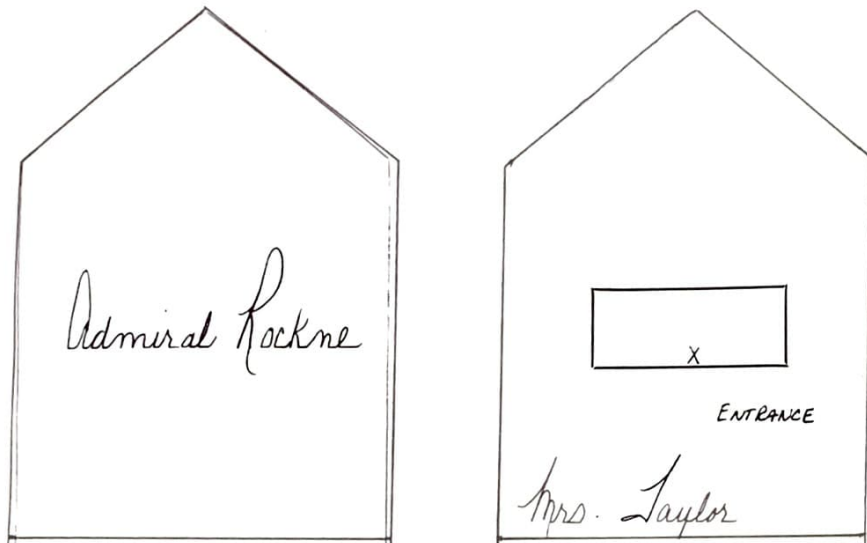 Admiral Rockne
X
ENTRANCE
Mrs. Taylor